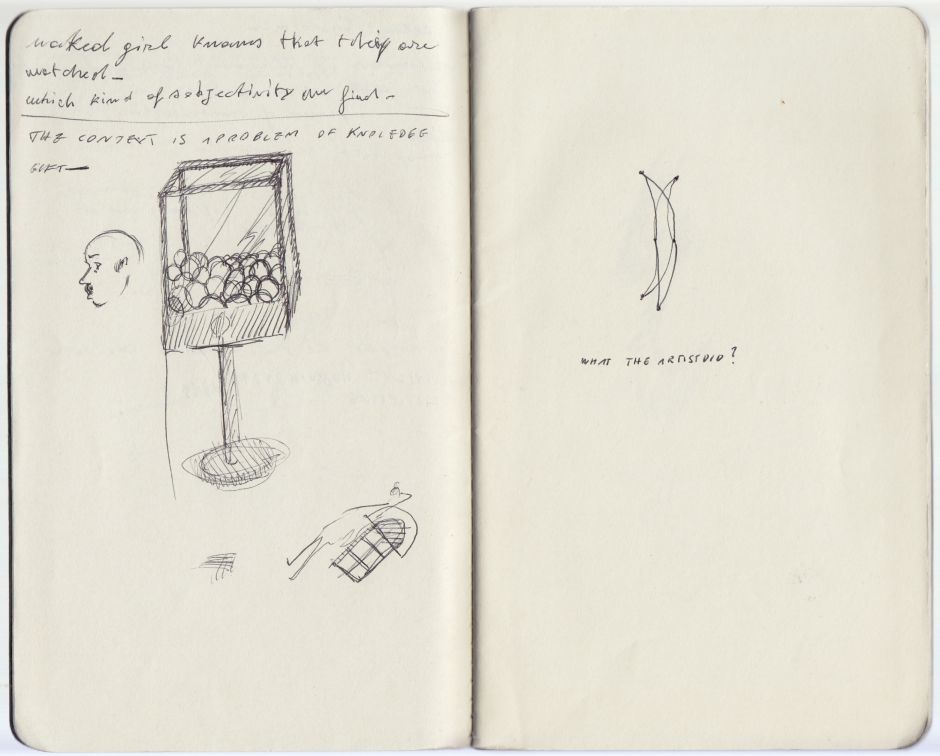 naked girl knows that they are
watched_
which kind of subjectivity our find_
THE CONTEXT IS A PROBLEM OF KNOLEDGE
GIFT—
WHAT THE ARTIST DID?